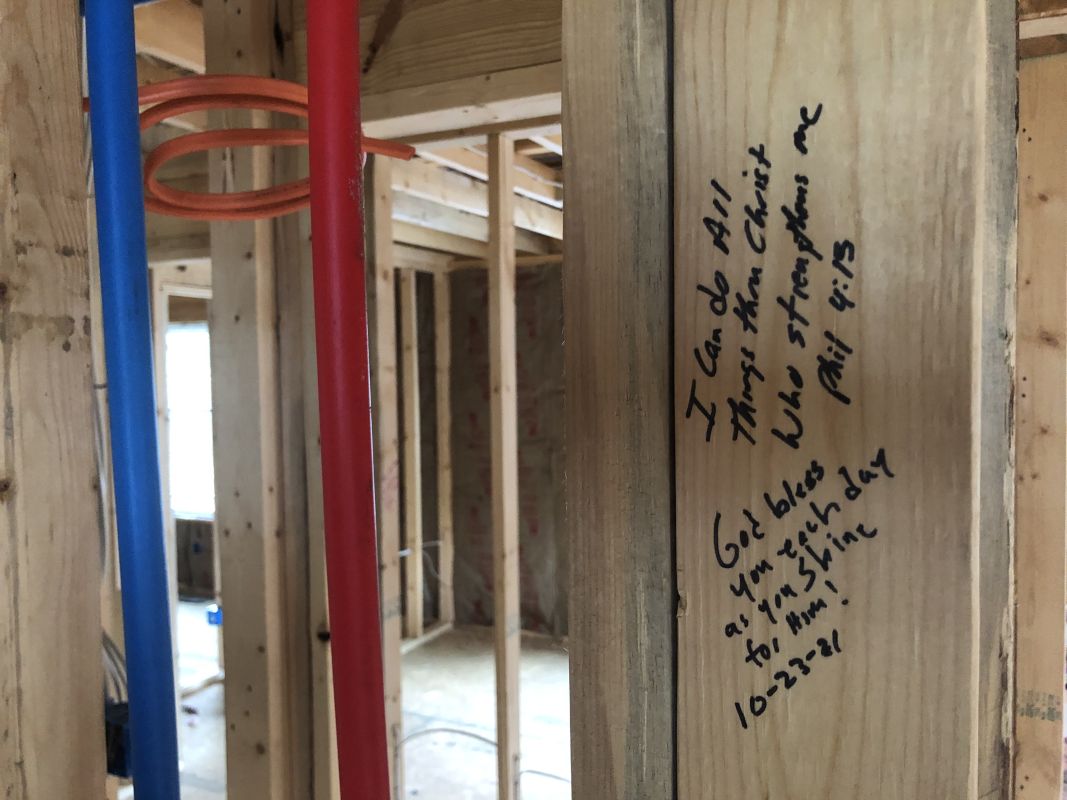 I Can do All
Things thru Christ
Who strengthens me
Phil 4:13
God bless
you each day
as you Shine
for Him!
10-23-21